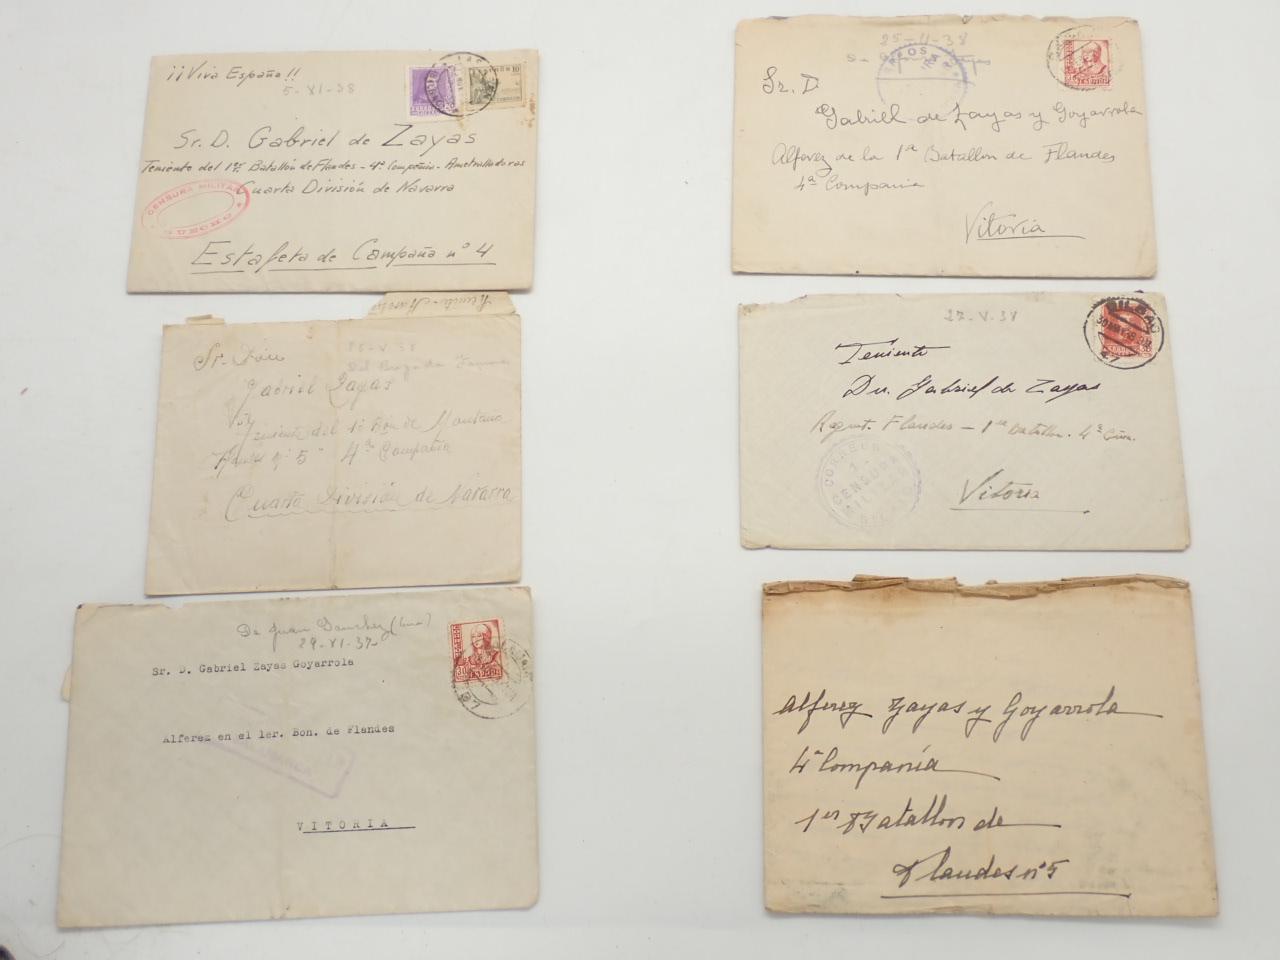 ¡¡Viva España!!
5-XI-38
Sr. D. Gabriel de Zayas
Teniente del 1er Batallón de Flandes - 4ª Compañía - Ametralladoras
Cuarta División de Navarra
Estafeta de Campaña nº 4
CENSURA MILITAR
10
Sr. Don
Gabriel Zayas
Teniente del 1º Bon de Montaña
4ª Compañía
Cuarta División de Navarra
De Juan Sanchez
29-XI-37
Sr. D. Gabriel Zayas Goyarrola
Alferez en el 1er. Bon. de Flandes
VITORIA
30
25-11-38
Sr. D
Gabriell de Zayas y Goyarrola
Alferez de la 1ª Batallon de Flandes
4ª Compania
Vitoria
27-V-38
BILBAO
Teniente
Dn. Gabriel de Zayas
Regmt. Flandes - 1er Batallon. 4ª Cña.
Vitoria
CORREOS
CENSURA
MILITAR
Alferez Zayas y Goyarrola
4ª Compañía
1er Batallon de
Flandes nº 5